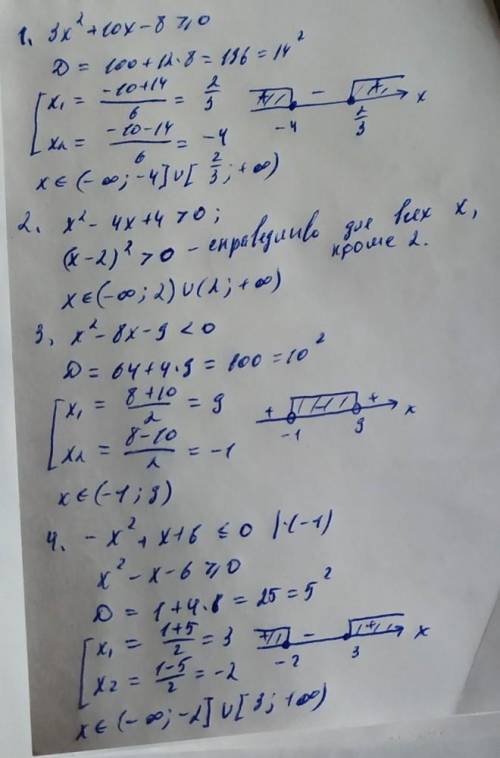 1. 3x² + 10x - 8 ≥ 0
D = 100 + 12·8 = 196 = 14²
x₁ = (-10+14)/6 = 2/3
x₂ = (-10-14)/6 = -4
+ - + x
-4 2/3
x ∈ (-∞; -4] ∪ [2/3; +∞)
2. x² - 4x + 4 > 0;
(x-2)² > 0 - справедливо для всех x,
кроме 2.
x ∈ (-∞; 2) ∪ (2; +∞)
3. x² - 8x - 9 < 0
D = 64 + 4·9 = 100 = 10²
x₁ = (8+10)/2 = 9
x₂ = (8-10)/2 = -1
+ - + x
-1 9
x ∈ (-1; 9)
4. -x² + x + 6 ≤ 0 |·(-1)
x² - x - 6 ≥ 0
D = 1 + 4·6 = 25 = 5²
x₁ = (1+5)/2 = 3
x₂ = (1-5)/2 = -2
+ - + x
-2 3
x ∈ (-∞; -2] ∪ [3; +∞)